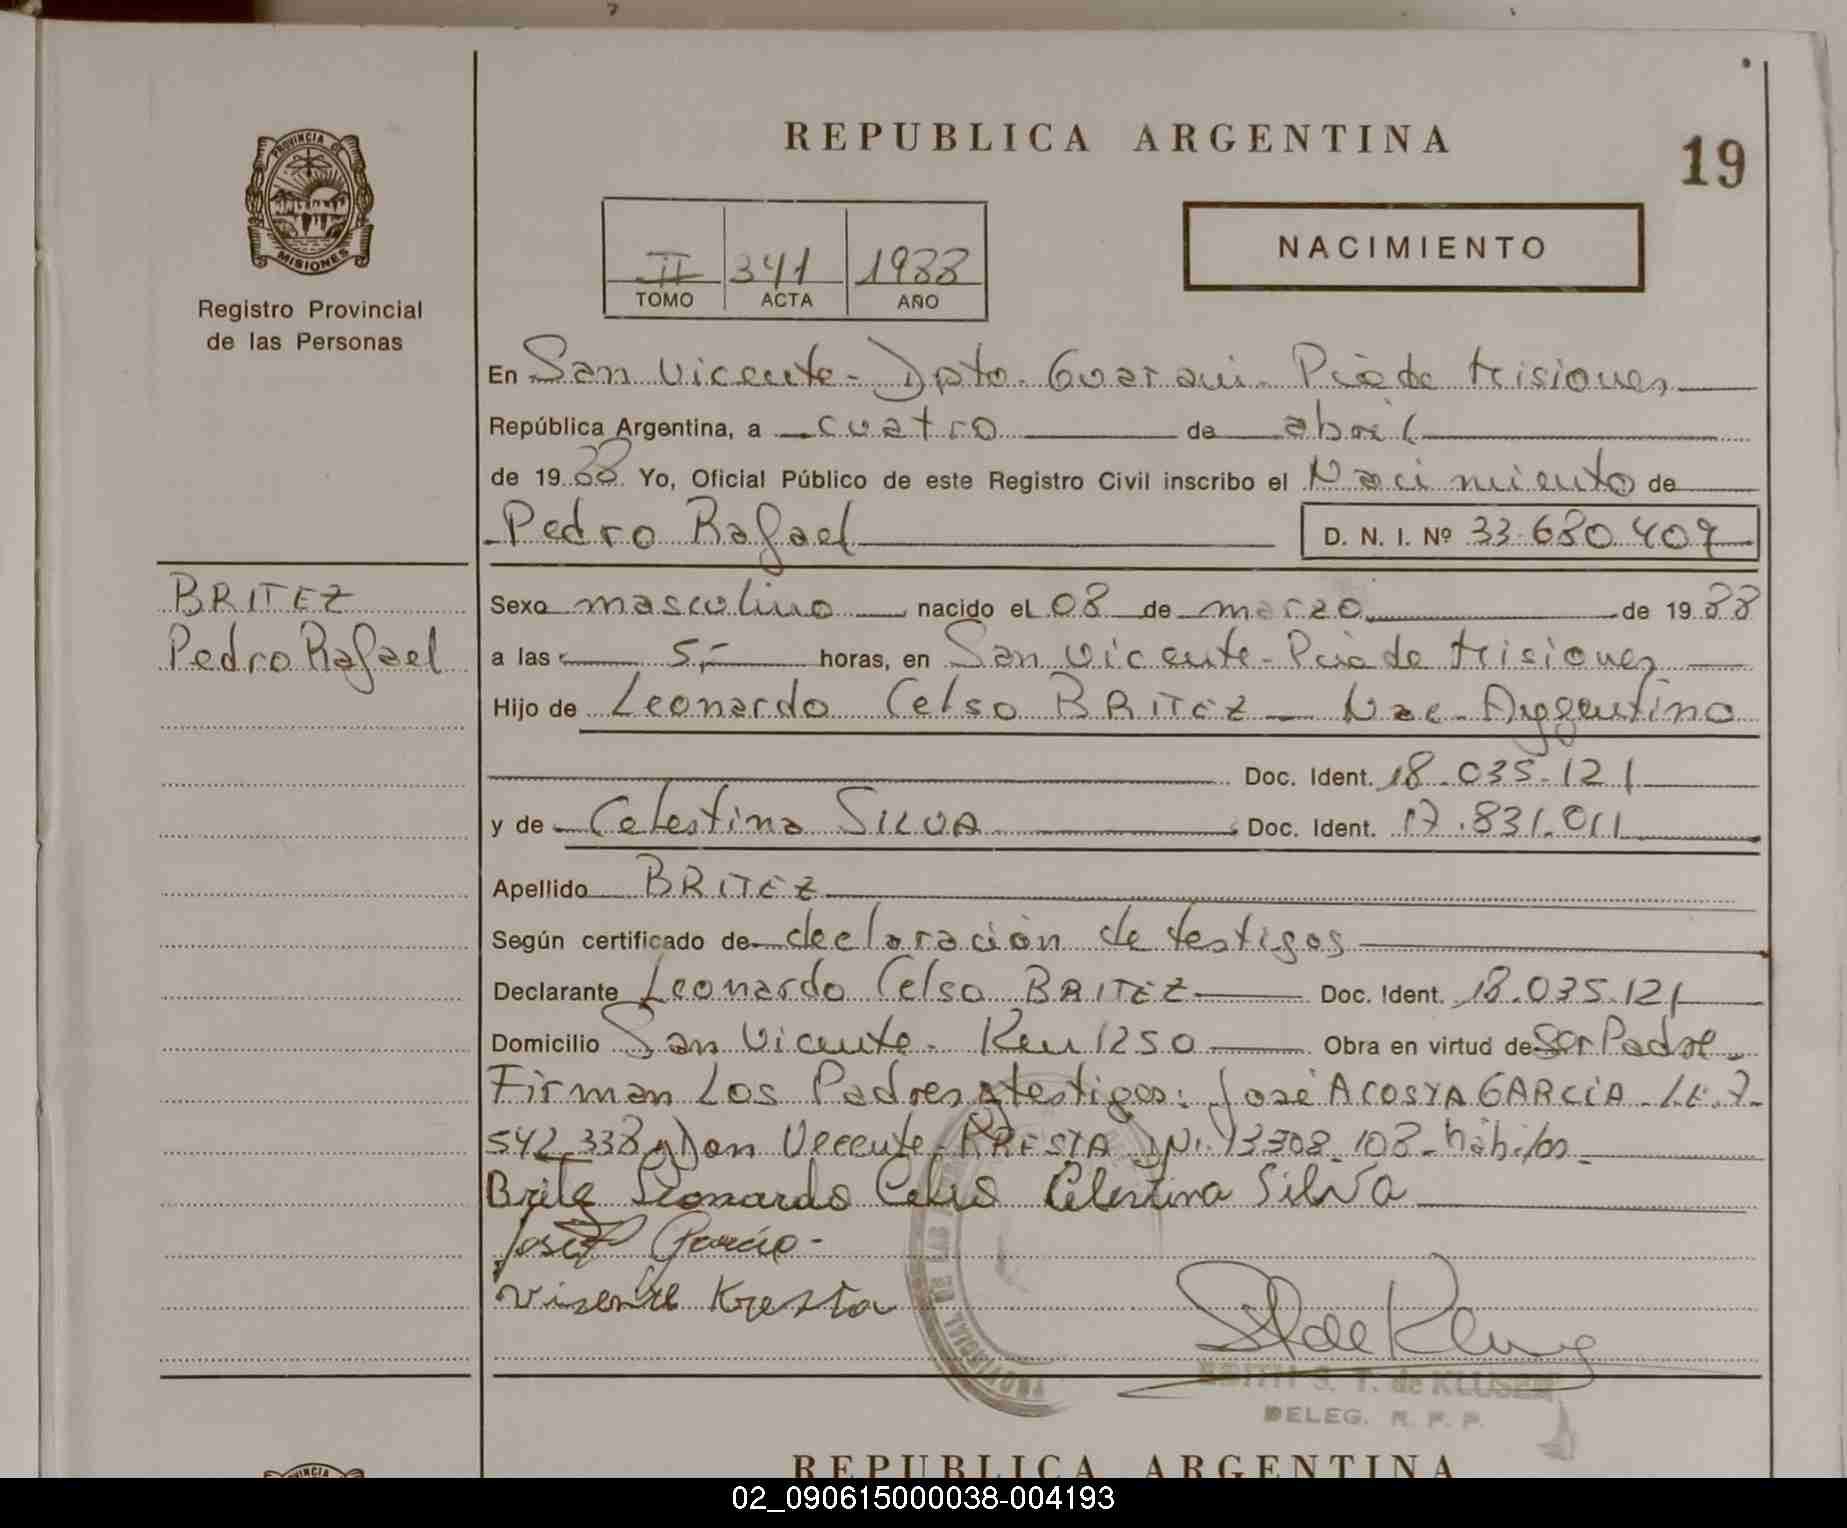 REPUBLICA ARGENTINA
19
PROVINCIA DE
MISIONES
Registro Provincial
de las Personas
II 341 1988
TOMO ACTA AÑO
NACIMIENTO
En San Vicente - Dpto. Guarani - Pcia de Misiones
República Argentina, a cuatro de abril
de 19 88 Yo, Oficial Público de este Registro Civil inscribo el Nacimiento de
Pedro Rafael D. N. I. Nº 33.680.407
BRITEZ
Pedro Rafael
Sexo masculino nacido el 08 de marzo de 19 88
a las 5,- horas, en San Vicente - Pcia de Misiones
Hijo de Leonardo Celso BRITEZ - Nac. Argentino
Doc. Ident. 18.035.121
y de Celestina SILVA Doc. Ident. 17.831.011
Apellido BRITEZ
Según certificado de declaración de testigos
Declarante Leonardo Celso BRITEZ Doc. Ident. 18.035.121
Domicilio San Vicente - Km 1250 Obra en virtud de Ser Padre -
Firman Los Padres y testigos: José ACOSTA GARCIA - L.E. 7.
542.338 y Don Vicente KRESTA DNI. 13.308.108 - hábiles -
Brite Leonardo Celso Celestina Silva
José García -
Visente Kresta
S T de Klusen
EDITH S. T. de KLUSEN
DELEG. R. P. P.
REPUBLICA ARGENTINA
02_090615000038-004193